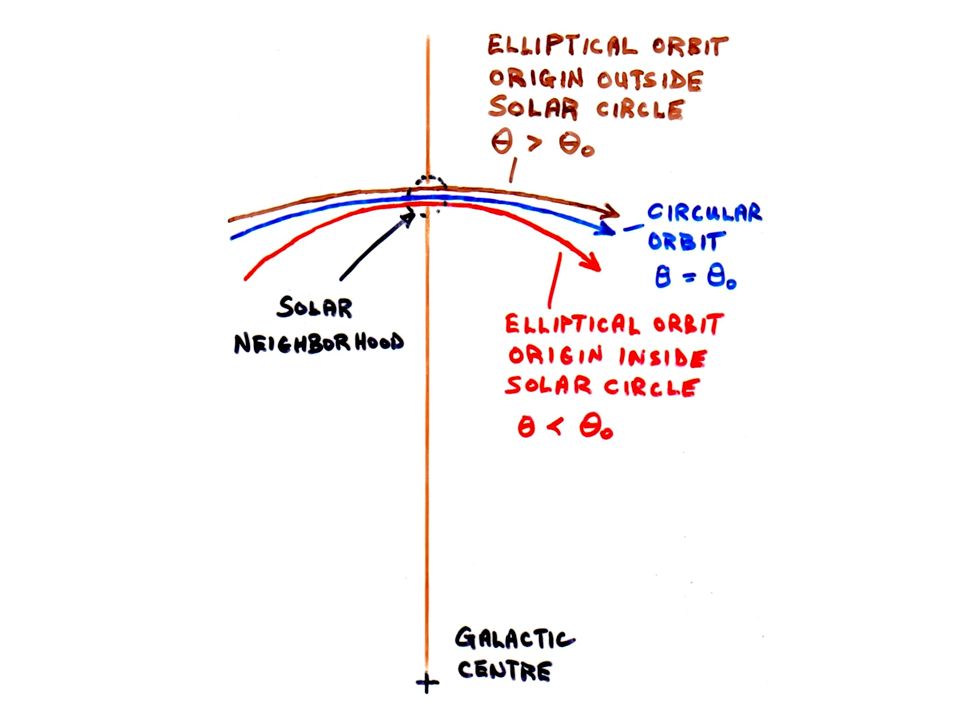 ELLIPTICAL ORBIT
ORIGIN OUTSIDE
SOLAR CIRCLE
θ > θ₀
CIRCULAR
ORBIT
θ = θ₀
SOLAR
NEIGHBORHOOD
ELLIPTICAL ORBIT
ORIGIN INSIDE
SOLAR CIRCLE
θ < θ₀
GALACTIC
CENTRE